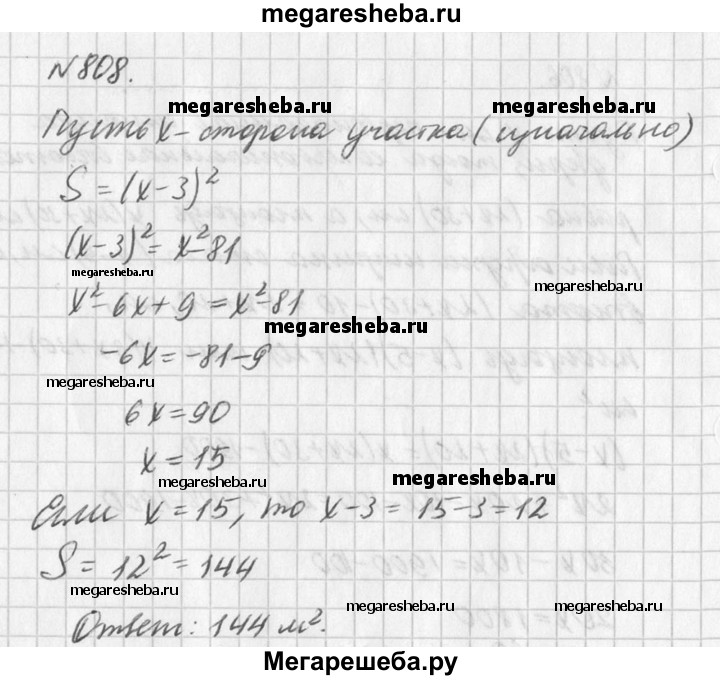 megaresheba.ru
N 808.
megaresheba.ru megaresheba.ru
Пусть х - сторона участка (изначально)
S = (x-3)²
(x-3)² = x²-81
megaresheba.ru
megaresheba.ru
x²-6x+9 = x²-81
megaresheba.ru
-6x = -81-9
megaresheba.ru
6x = 90
x = 15
megaresheba.ru
megaresheba.ru
Если x = 15, то x-3 = 15-3 = 12
S = 12² = 144
megaresheba.ru
megaresheba.ru megaresheba.ru
Ответ: 144 м².
Мегарешеба.ру